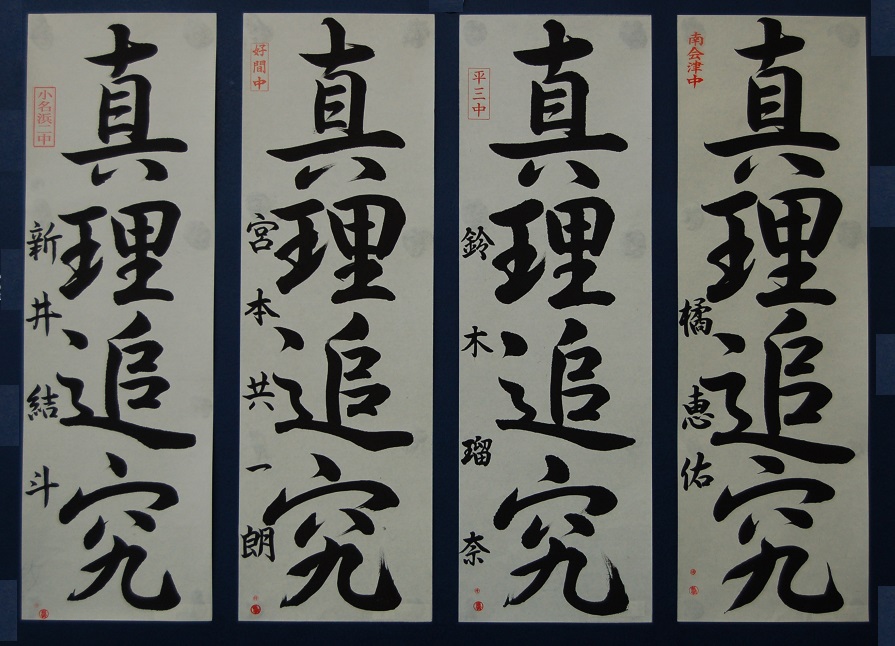 南会津中
真理追究
橘恵佑
平三中
真理追究
鈴木瑠奈
好間中
真理追究
宮本共一朗
小名浜二中
真理追究
新井結斗